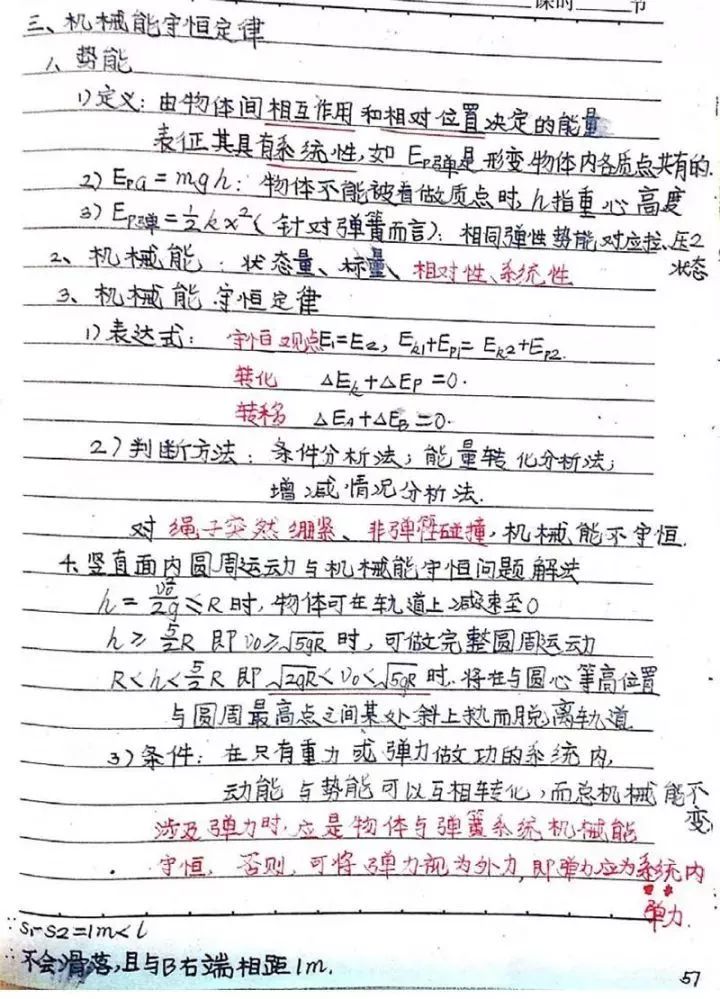 课时 节
三、机械能守恒定律
1、势能
1)定义：由物体间相互作用和相对位置决定的能量
表征其具有系统性，如 Ep弹是形变物体内各质点共有的.
2) EpG = mgh：物体不能被看做质点时，h指重心高度
3) Ep弹 = ½kx²（针对弹簧而言）：相同弹性势能对应拉、压2
状态
2、机械能：状态量、标量、相对性、系统性
3、机械能守恒定律
1)表达式：守恒观点E₁=E₂, Ek1+Ep1=Ek2+Ep2.
转化 ΔEk+ΔEp=0.
转移 ΔEA+ΔEB=0.
2)判断方法：条件分析法；能量转化分析法；
增减情况分析法.
对绳子突然绷紧、非弹性碰撞，机械能不守恒.
4.竖直面内圆周运动与机械能守恒问题解法
h = v₀²/2g ≤ R 时，物体可在轨道上减速至0
h ≥ 5/2R 即 v₀≥√5gR 时，可做完整圆周运动
R<h<5/2R 即 √2gR<v₀<√5gR 时.将在与圆心等高位置
与圆周最高点之间某处斜上抛而脱离轨道
3)条件：在只有重力或弹力做功的系统内，
动能与势能可以互相转化，而总机械能不
变
涉及弹力时，应是物体与弹簧系统机械能
守恒，否则，可将弹力视为外力，即弹力应为系统内
弹力.
∵S₁-S₂=1m<l
∴不会滑落,且与B右端相距1m.
57